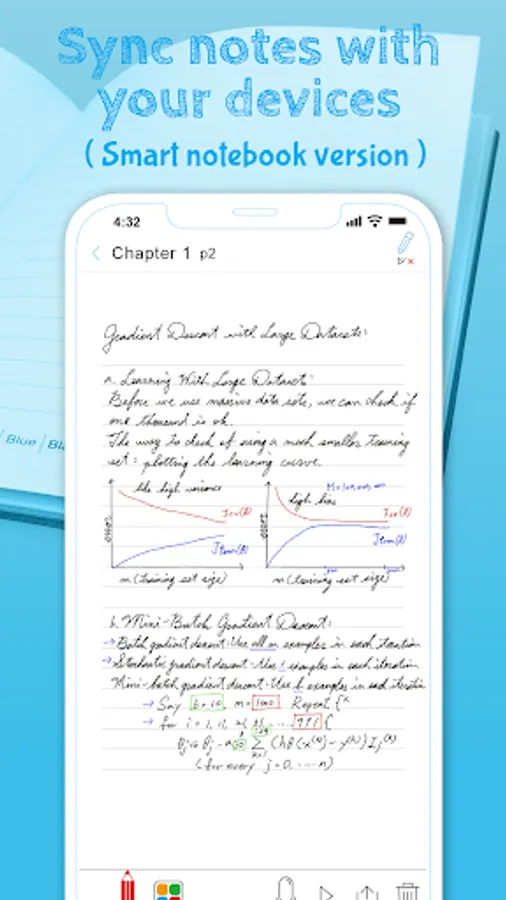 Sync notes with
your devices
( Smart notebook version )
4:32
Chapter 1 p2
Gradient Descent with Large Datasets:
a. Learning With Large Dataset:
Before we use massive data sets, we can check if
one thousand is ok.
The way to check of using a much smaller training
set : plotting the learning curve.
like high variance
Jcv(θ)
Jtrain(θ)
error
m (training set size)
high bias
Jcv(θ)
Jtrain(θ)
error
m (training set size)
Blue
b. Mini-Batch Gradient Descent:
→ Batch gradient descent: Use all m examples in each iteration
→ Stochastic gradient descent: Use 1 examples in each iteration
Mini-batch gradient descent: Use b examples in each iteration
→ Say b = 10, m = 1000 Repeat {
→ for i = 1, 11, 21, ..... 991 {
(for every j = 0, ..... n)